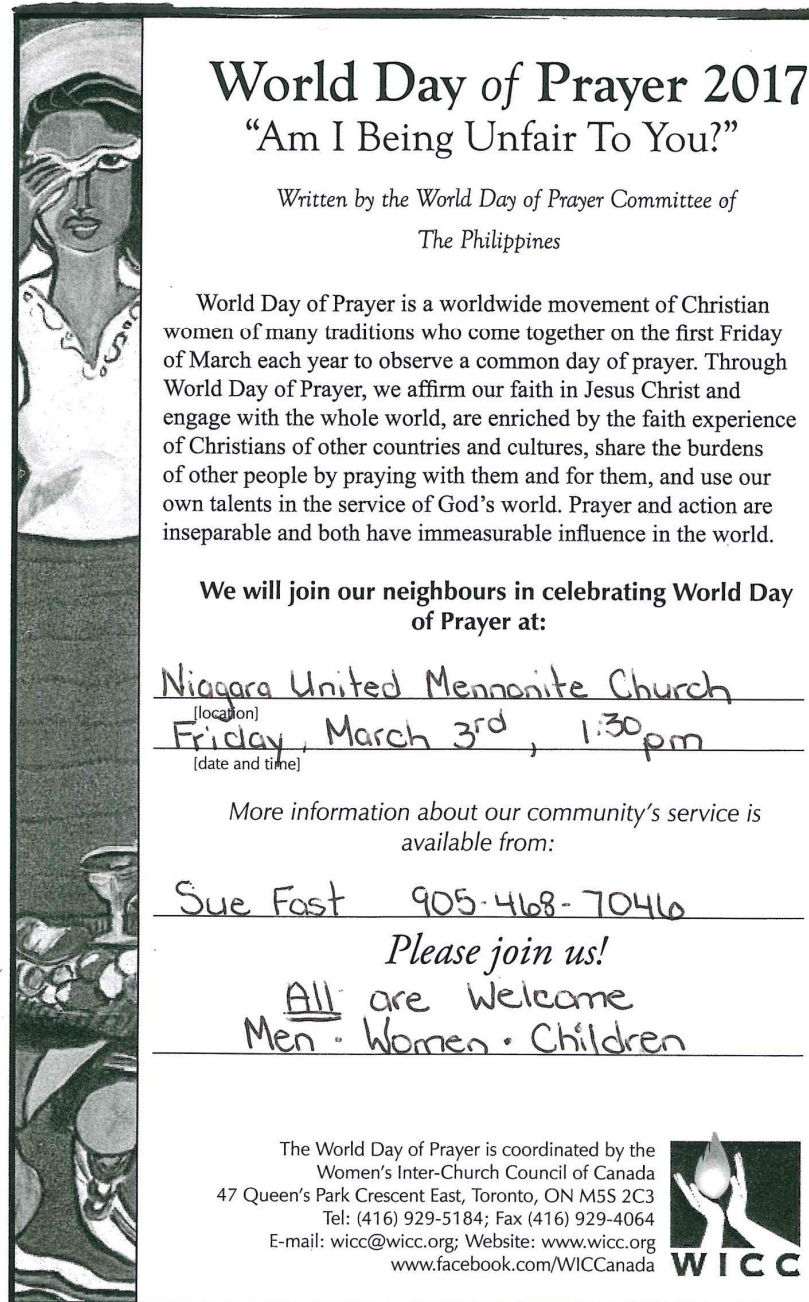 World Day of Prayer 2017
“Am I Being Unfair To You?”
Written by the World Day of Prayer Committee of
The Philippines
World Day of Prayer is a worldwide movement of Christian
women of many traditions who come together on the first Friday
of March each year to observe a common day of prayer. Through
World Day of Prayer, we affirm our faith in Jesus Christ and
engage with the whole world, are enriched by the faith experience
of Christians of other countries and cultures, share the burdens
of other people by praying with them and for them, and use our
own talents in the service of God’s world. Prayer and action are
inseparable and both have immeasurable influence in the world.
We will join our neighbours in celebrating World Day
of Prayer at:
Niagara United Mennonite Church
[location]
Friday, March 3rd, 1:30 pm
[date and time]
More information about our community’s service is
available from:
Sue Fast 905-468-7046
Please join us!
All are Welcome
Men · Women · Children
The World Day of Prayer is coordinated by the
Women’s Inter-Church Council of Canada
47 Queen’s Park Crescent East, Toronto, ON M5S 2C3
Tel: (416) 929-5184; Fax (416) 929-4064
E-mail: wicc@wicc.org; Website: www.wicc.org
www.facebook.com/WICCanada
WICC